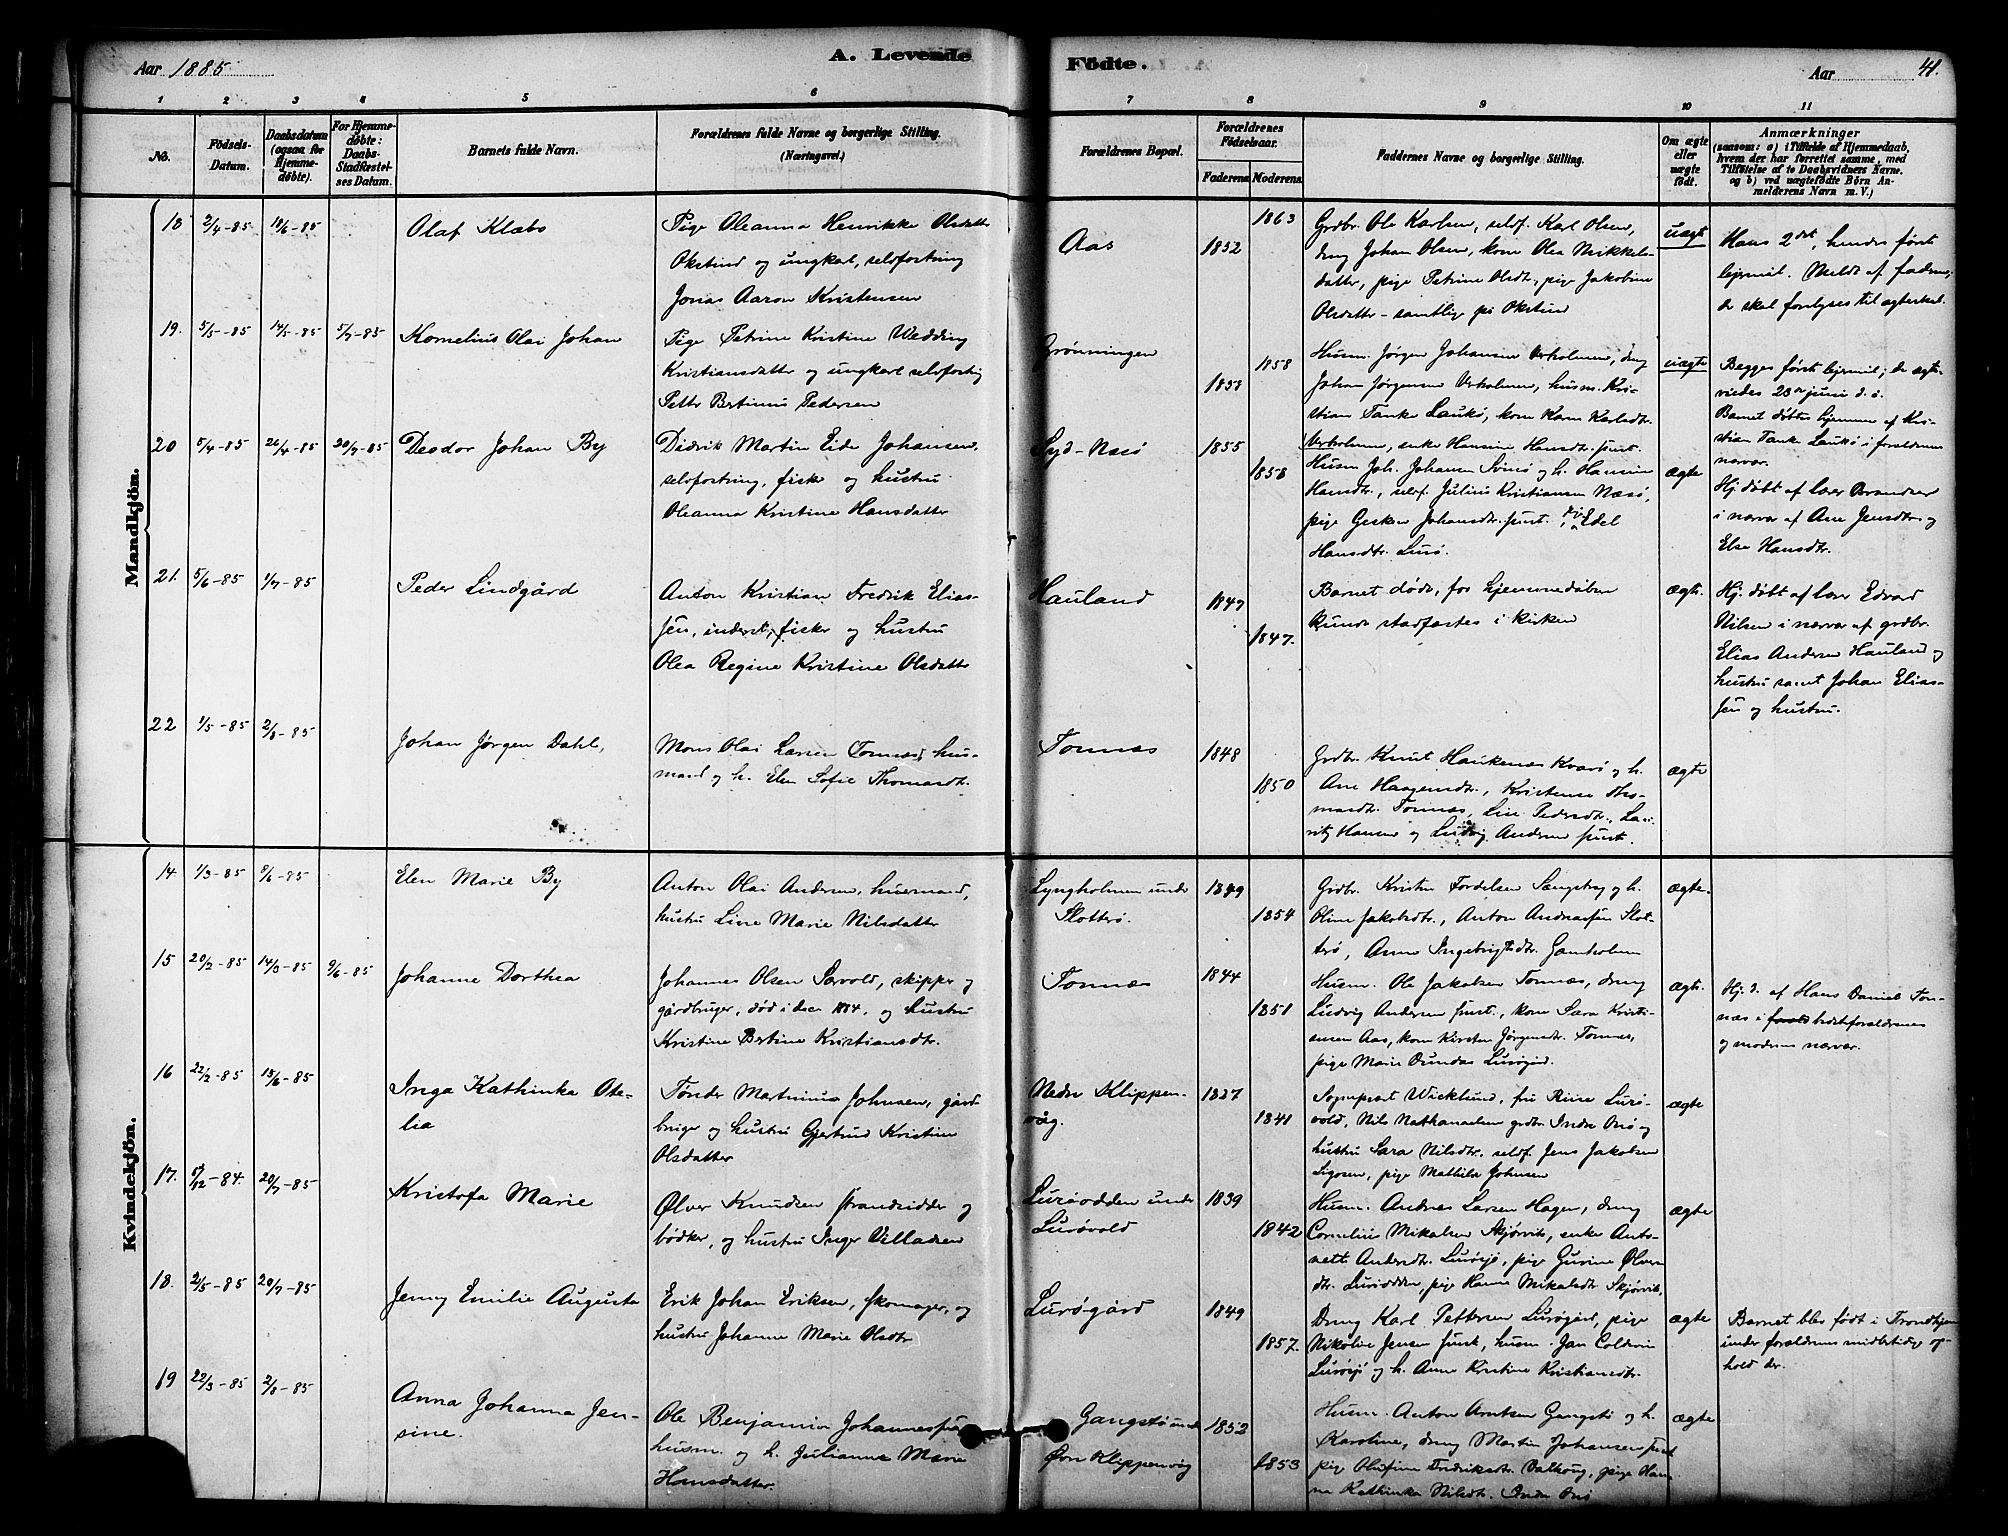 Aar 1885
A. Levende
Födte.
Aar
41.
1 2 3 4 5 6 7 8 9 10 11
No.
Födsels-
Datum.
Daabsdatum
(ogsaa for
Hjemme-
döbte).
For Hjemme-
döbte:
Daabs-
Stadfæstel-
ses Datum.
Barnets fulde Navn.
Forældrenes fulde Navne og borgerlige Stilling.
(Næringsvei.)
Forældrenes Bopæl.
Forældrenes
Födselsaar.
Faderens Moderens
Faddernes Navne og borgerlige Stilling.
Om ægte
eller
uægte
födt.
Anmærkninger
(saasom: a) i Tilfælde af Hjemmedaab,
hvem der har forrettet samme, med
Tilföielse af to Daabsvidners Navne.
og b) ved uægtefödte Börn An-
melderens Navn m. V.)
Mandkjön.
18 2/4-85 18/6-85
Olaf Klæbo
Pige Oleanna Henrikke Olsdatter
Okstind og ungkarl, selvfostring
Jonas Aaron Kristensen
Aas
1852
1863
Grdbr. Ole Karlsen, selvf. Karl Olsen,
dreng Johan Olsen, kone Olea Mikkels-
datter, pige Petrine Olsdtr., pige Jakobine
Olsdatter - samtlige på Okstind
uægt
Hans 2det, hendes første
lejermål. Meldt af faderen,
de skal forlyses til ægteskab.
19. 5/5-85 14/5-85 5/7-85
Kornelius Olai Johan
Pige Petrine Kristine Wedding
Kristiansdatter og ungkarl selvfostring
Petter Bertinus Pedersen
Grønningen
1858
1858
Husm. Jørgen Johansen Verholmen, dreng
Johan Jørgensen Verholmen, husm. Kri-
stian Tanke Laukø, kone Karen Karlsdtr.
Verholmen, enke Hansine Hansdtr. smst.
uægte
Begges første lejermål; de ægte-
viedes 23de juni d. å.
Barnet døbtes hjemme af Kri-
stian Tanke Laukø i forældrenes
nærvær.
20 5/4-85 26/4-85 20/7-85
Deodor Johan By
Didrik Martin Eide Johansen,
selvfostring, fisker og hustru
Oleanna Kristine Hansdatter
Syd-Nesø
1855
1858
Husm. Joh. Johansen Svinø og h. Hansine
Hansdtr., selvf. Julius Kristiansen Næsø,
pige Gesken Johansdtr. smst., pige Edel
Hansdtr. Lurø.
ægte
Hj. døbt af lærer Brandser
i nærvær af Ane Jensdtr. og
Else Hansdtr.
21. 5/6-85 1/7-85
Peder Lindgård
Anton Kristian Fredrik Elias-
sen, inderst, fisker og hustru
Olea Regine Kristine Olsdatter
Hauland
1849
1847.
Barnet døde, før hjemmedåben
kunde stadfæstes i kirken
ægte.
Hj. døbt af lærer Edvard
Nilsen i nærvær af grdbr.
Elias Andersen Hauland og
hustru samt Johan Elias-
sen og hustru.
22 1/5-85 2/8-85
Johan Jørgen Dahl,
Mons Olai Larsen Tonnes, hus-
mand og h. Elen Sofie Thomasdtr.
Tonnes
1848
1850
Grdbr. Knut Haukenæs Kvarø og h.
Ane Haagensdtr., Kristense Tho-
masdtr. Tonnæs, Line Pedersdtr., Lau-
ritz Hansen og Ludvig Andersen smst.
ægte
Kvindekjön.
14 1/3-85 8/6-85
Elen Marie By
Anton Olai Andersen, husmand,
hustru Line Marie Nilsdatter
Lyngholmen under
Slotterø.
1849
1854
Grdbr. Kristen Tordelsen Sængskag og h.
Oline Jakobsdtr., Anton Andreassen Slot-
terø, Anne Ingebrigtsdtr. Gamholmen
ægte.
15 20/2-85 14/3-85 9/6-85
Johanne Dorthea
Johannes Olsen Sørvold, skipper og
gårdbruger, død i decr 1884, og hustru
Kristine Bertine Kristiansdtr.
Tonnæs
1844
1851
Husm. Ole Jakobsen Tonnæs, dreng
Ludvig Andersen smst., kone Sara Kristi-
ansen Aas, kone Kirsten Jørgensdtr. Tonnes,
pige Marie Dundas Lurøgård.
ægte.
Hj. d. af Hans Daniel Ton-
næs i bedsteforældrenes
og moderens nærvær.
16 22/2-85 15/6-85
Inga Kathinka Ote-
lia
Tønder Martinus Johnsen, gård-
bruger og hustru Gjertrud Kristine
Olsdatter
Nedre Klippen-
våg.
1827
1841
Sognepræst Wicklund, fru Riise Lurø-
vold, Nils Nathanaelsen grdbr. Indre Onø og
hustru Sara Nilsdtr. selvf. Jens Jakobsen
Sigosen, pige Mathilde Johnsen
ægte
17. 5/12-84. 20/7-85
Kristofa Marie
Ølver Knudsen strandsidder og
bødker, og hustru Inger Villadsen
Lurøodden under
Lurøvold
1839
1842
Husm. Andreas Larsen Hagen, dreng
Cornelius Mikalsen Skjørvik, enke Anto-
nette Andersdtr. Lurøsjø, pige Gurine Ølvers-
dtr. Lurøodden, pige Hanna Mikalsdtr. Skjørvik,
ægte
18. 2/5-85 20/7-85
Jenny Emilie Augusta
Erik Johan Eriksen, skomager, og
hustru Johanne Marie Olsdtr.
Lurøgård
1849
1857.
Dreng Karl Pettersen Lurøgård, pige
Nikoline Jensen smst, husm. Jan Coldevin
Lurøsjø og h. Anne Kristine Kristiansdtr.
ægte
Barnet blev født i Trondhjem
under forældrenes midlertidige op-
hold der.
19 22/3-85 2/8-85
Anna Johanna Jen-
sine.
Ole Benjamin Johannessen
husm. og h. Julianna Marie
Hansdatter.
Gangstø under
Øvre Klippenvåg
1852
1853
Husm. Anton Arntsen Gangstø og h.
Karoline, dreng Martin Johansen smst
pige Olufine Fredriksdtr. Valkvug, pige Han-
na Kathinka Nilsdtr. Indre Onø
ægte